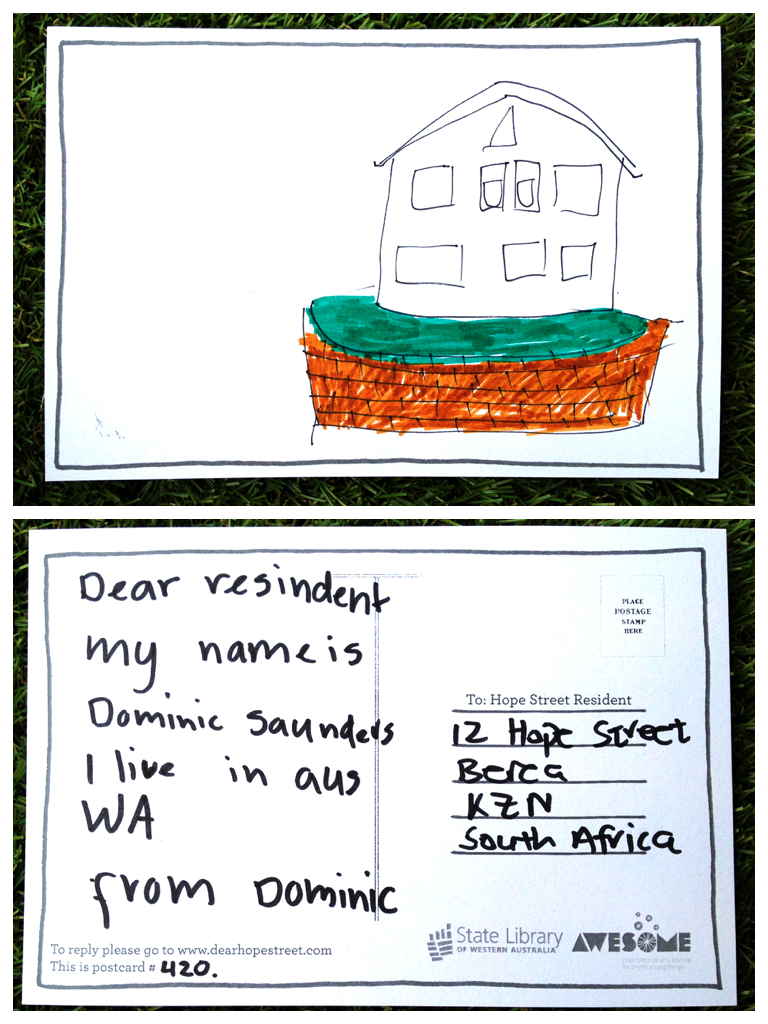 Dear resindent
my name is
Dominic Saunders
I live in aus
WA
from Dominic
To reply please go to www.dearhopestreet.com
This is postcard # 420.
PLACE
POSTAGE
STAMP
HERE
To: Hope Street Resident
12 Hope Street
Berea
KZN
South Africa
State Library
OF WESTERN AUSTRALIA
AWESOME
international arts festival
for bright young things